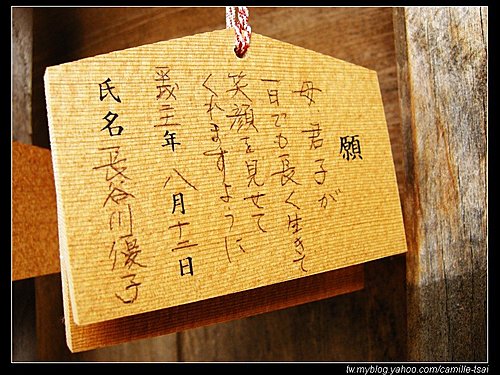 願
母 君子が
一日でも長く生きて
笑顔を見せて
くれますように
年 八月十二日
氏名 長谷川優子
tw.myblog.yahoo.com/camille-tsai